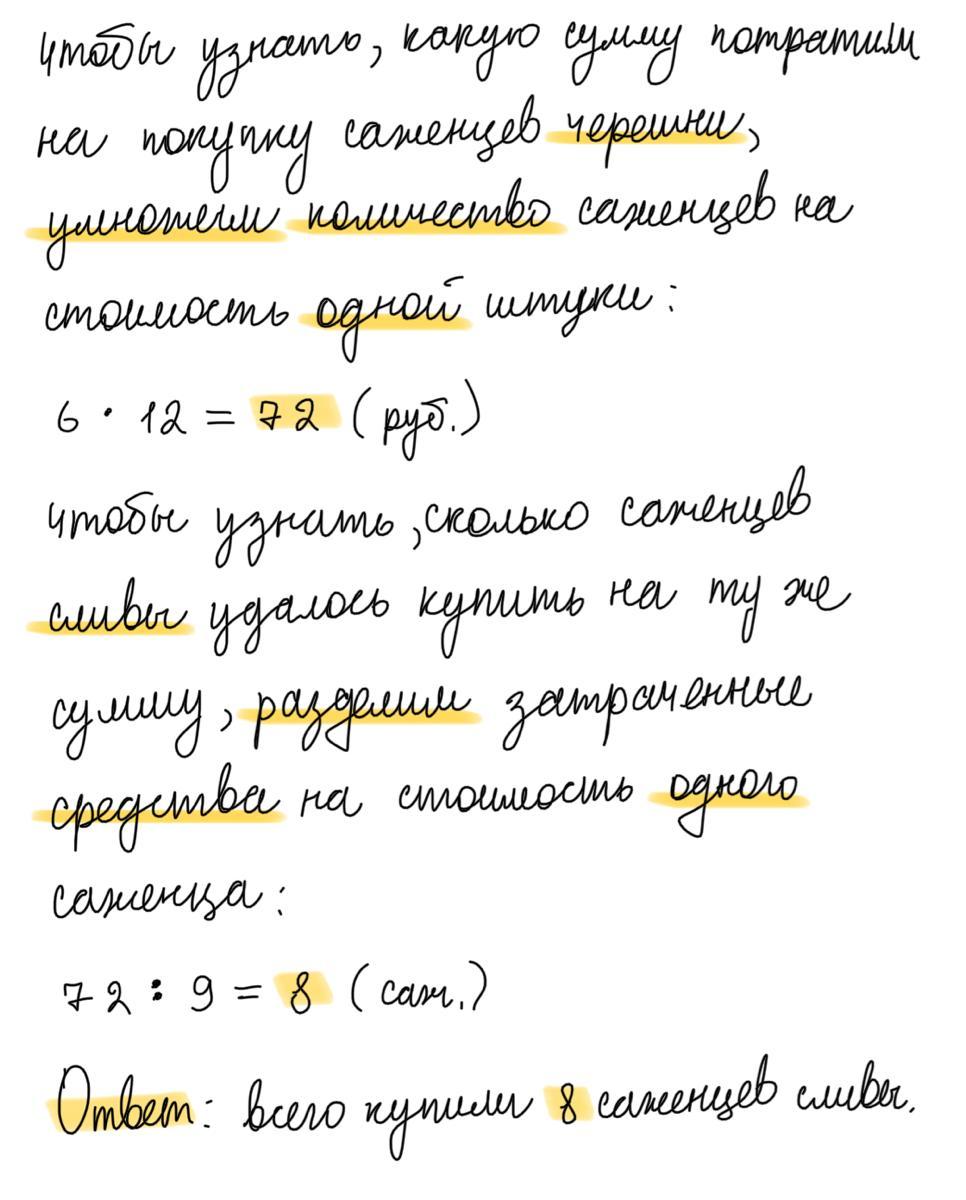 Чтобы узнать, какую сумму потратили
на покупку саженцев черешни,
умножим количество саженцев на
стоимость одной штуки:
6 · 12 = 72 (руб.)
Чтобы узнать, сколько саженцев
сливы удалось купить на ту же
сумму, разделим затраченные
средства на стоимость одного
саженца:
72 : 9 = 8 (саж.)
Ответ: всего купили 8 саженцев сливы.